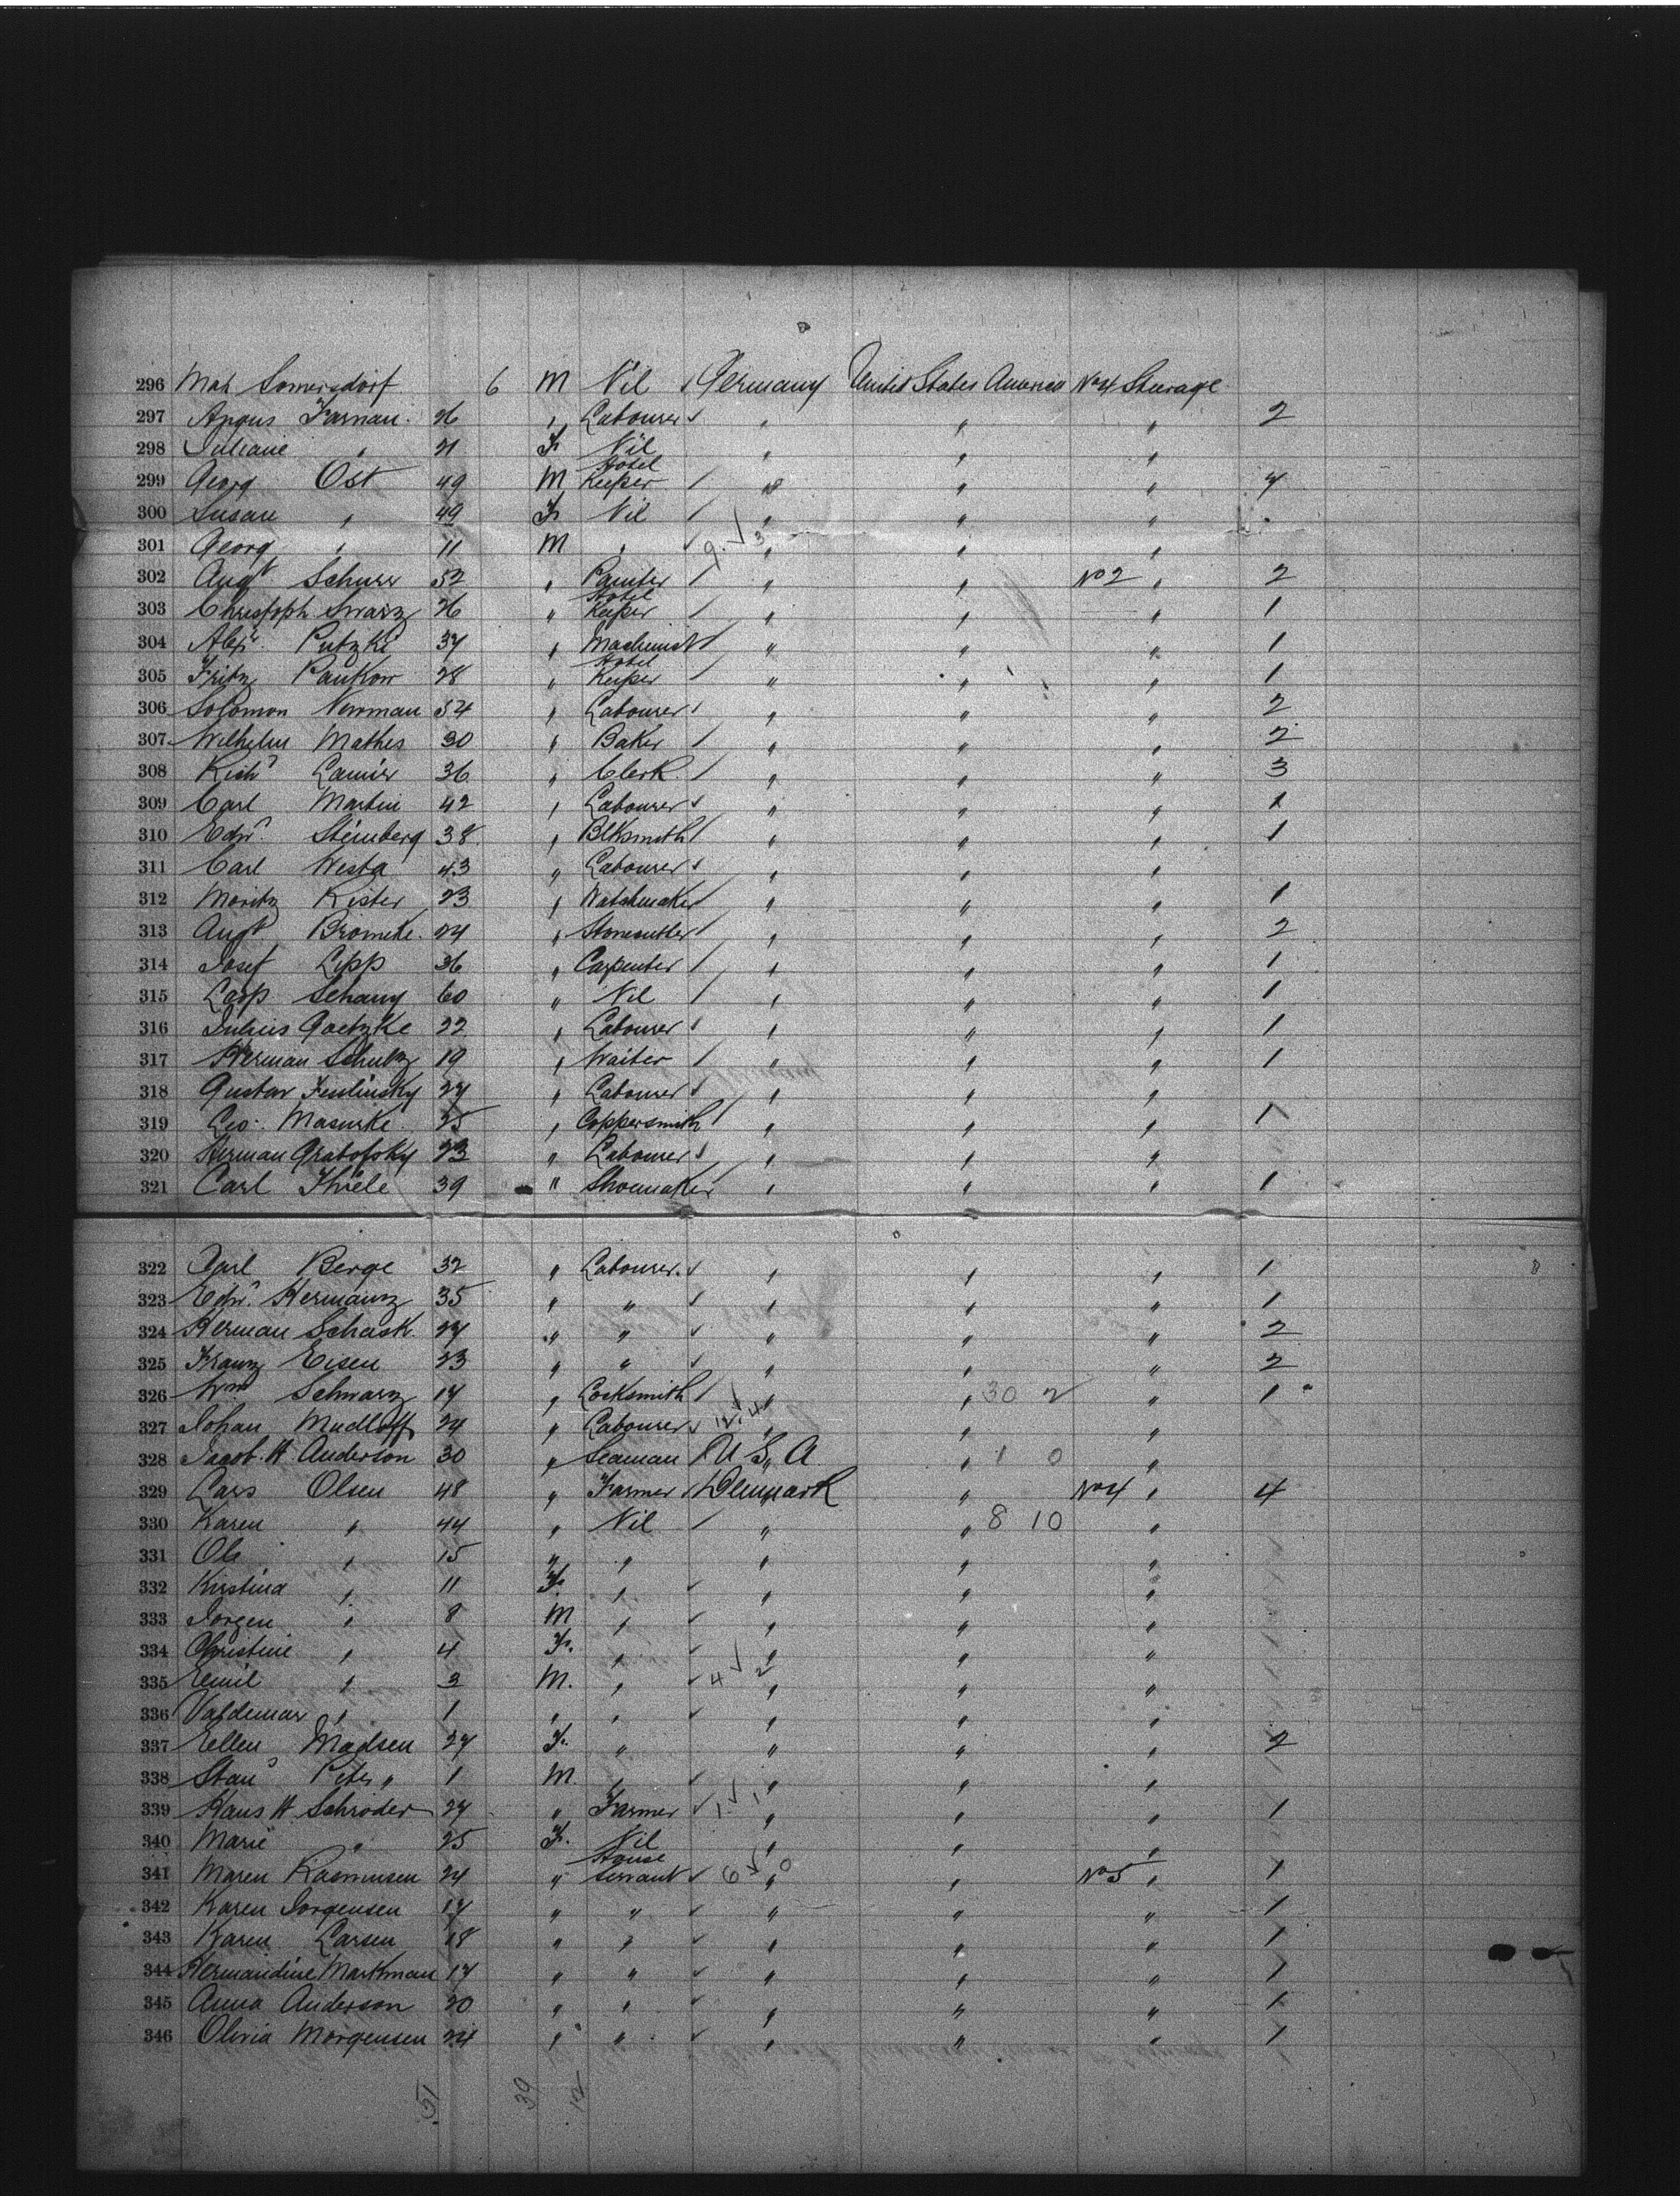 296 Max Somersdorf 6 M Nil Germany United States America No 4 Steerage
297 Angus Farnau 26 " Labourer " " " 2
298 Juliane " 21 F. Nil " " "
299 Georg Ost 49 M Hotel Keeper " " " 7
300 Susan " 49 F. Nil " " "
301 Georg " 11 M " 9 3 " " "
302 Augt Schurr 52 " Painter " " No 2 " 2
303 Christoph Swarz 26 " Hotel Keeper " " " 1
304 Alexr Putzki 37 " Machinist " " " 1
305 Fritz Paukow 28 " Hotel Keeper " " " 1
306 Solomon Newman 54 " Labourer " " " 2
307 Wilhelm Mathes 30 " Baker " " " 2
308 Richd Lanier 36 " Clerk " " " 3
309 Carl Martin 42 " Labourer " " " 1
310 Edwd Steinberg 38 " Blksmith " " " 1
311 Carl Westa 43 " Labourer " " "
312 Moritz Kister 23 " Watchmaker " " " 1
313 Augt Bromeke 24 " Stonecutter " " " 2
314 Josef Lipp 36 " Carpenter " " " 1
315 Casp Schany 60 " Nil " " " 1
316 Julius Goetzke 22 " Labourer " " " 1
317 Herman Schultz 19 " Waiter " " " 1
318 Gustav 27 " Labourer " " "
319 Leo. Masurke 25 " Coppersmith " " " 1
320 Herman Grabofsky 23 " Labourer " " "
321 Carl Thiele 39 " Shoemaker " " " 1
322 Carl Berge 32 " Labourer " " " 1
323 Edwd Hermanz 35 " " " " " 1
324 Herman Schask 27 " " " " " 2
325 Franz Eisen 23 " " " " " 2
326 Wm Schwarz 17 " Locksmith " " 30 2 " 1
327 Johan Mudloff 24 " Labourer 12 4 " " "
328 Jacob H Anderson 30 " Seaman U S A " 1 0 "
329 Lars Olsen 48 " Farmer Denmark " No 4 " 4
330 Karen " 44 " Nil " " 8 10 "
331 Ole " 15 " " " " "
332 Kirstina " 11 F. " " " "
333 Jorgen " 8 M " " " "
334 Christine " 4 F. " " " "
335 Emil " 3 M. " 4 2 " " "
336 Valdemar " 1 " " " " "
337 Ellen Madsen 27 F. " " " " 2
338 Peter " 1 M. " " " "
339 Hans H Schroder 27 " Farmer 1 1 " " " 1
340 Marie " 25 F. Nil " " "
341 Maren Rasmusen 24 " House Servant 6 0 " " No 5 " 1
342 Karen Jorgensen 17 " " " " " 1
343 Karen Larsen 18 " " " " " 1
344 Hermandine Markman 17 " " " " " 1
345 Anna Anderson 20 " " " " " 1
346 Olivia Morgensen 24 " " " " " 1
51 39 12